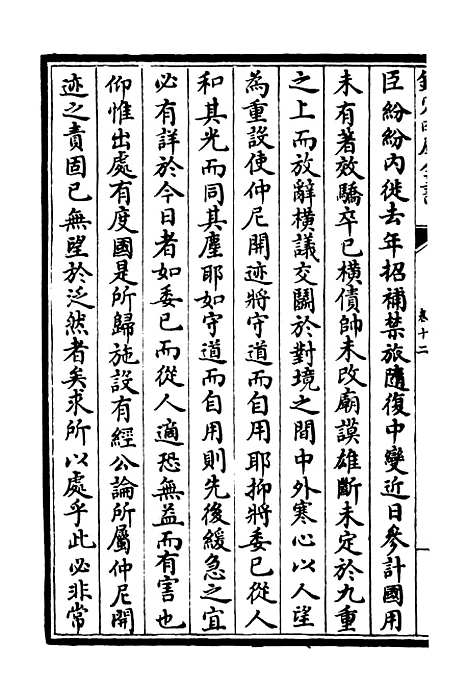 欽定四庫全書
卷十二
臣紛紛内徙去年招補禁旅隨復中變近日參計國用
未有著效驕卒已横債帥未改廟謨雄斷未定於九重
之上而放辭横議交鬬於對境之間中外寒心以人望
為重設使仲尼開迹將守道而自用耶抑將委已從人
和其光而同其塵耶如守道而自用則先後緩急之宜
必有詳於今日者如委已而從人適恐無益而有害也
仰惟出處有度國是所歸施設有經公論所屬仲尼開
迹之責固已無望於泛然者矣求所以處乎此必非常